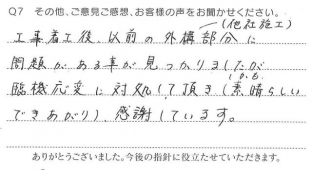 Q7 その他、ご意見ご感想、お客様の声をお聞かせください。
(他社施工)
工事着工後、以前の外構部分に
問題がある事が見つかりましたが
臨機応変に対処して頂き(しかも素晴らしい
できあがり)、感謝しています。
ありがとうございました。今後の指針に役立たせていただきます。